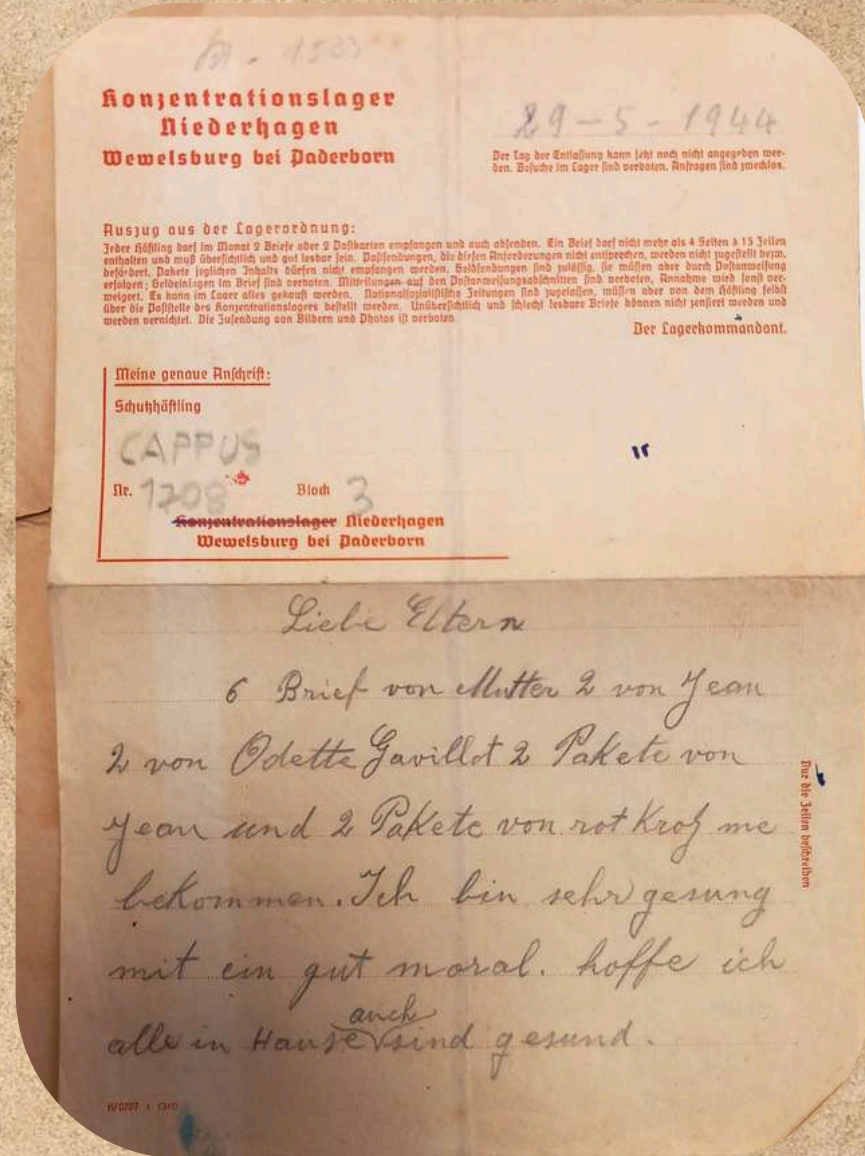 Konzentrationslager
Niederhagen
Wewelsburg bei Paderborn
29-5-1944
Der Tag der Entlassung kann jetzt noch nicht angegeben wer-
den. Besuche im Lager sind verboten. Anfragen sind zwecklos.
Auszug aus der Lagerordnung:
Jeder Häftling darf im Monat 2 Briefe oder 2 Postkarten empfangen und auch absenden. Ein Brief darf nicht mehr als 4 Seiten à 15 Zeilen
enthalten und muß übersichtlich und gut lesbar sein. Postsendungen, die diesen Anforderungen nicht entsprechen, werden nicht zugestellt bezw.
befördert. Pakete jeglichen Inhalts dürfen nicht empfangen werden. Geldsendungen sind zulässig, sie müssen aber durch Postanweisung
erfolgen; Geldeinlagen im Brief sind verboten. Mitteilungen auf den Postanweisungsabschnitten sind verboten, Annahme wird sonst ver-
weigert. Es kann im Lager alles gekauft werden. Nationalsozialistische Zeitungen sind zugelassen, müssen aber von dem Häftling selbst
über die Poststelle des Konzentrationslagers bestellt werden. Unübersichtlich und schlecht lesbare Briefe können nicht zensiert werden und
werden vernichtet. Die Zusendung von Bildern und Photos ist verboten
Der Lagerkommandant.
Meine genaue Anschrift:
Schutzhäftling
CAPPUS
Nr. 1708 Block 3
Konzentrationslager Niederhagen
Wewelsburg bei Paderborn
Liebe Eltern
6 Brief von Mutter 2 von Jean
2 von Odette Gavillot 2 Pakete von
Jean und 2 Pakete von rot me
bekommen. Ich bin sehr gesung
mit ein gut moral. hoffe ich
alle in Hause auch sind gesund.
Nur die Zeilen beschreiben